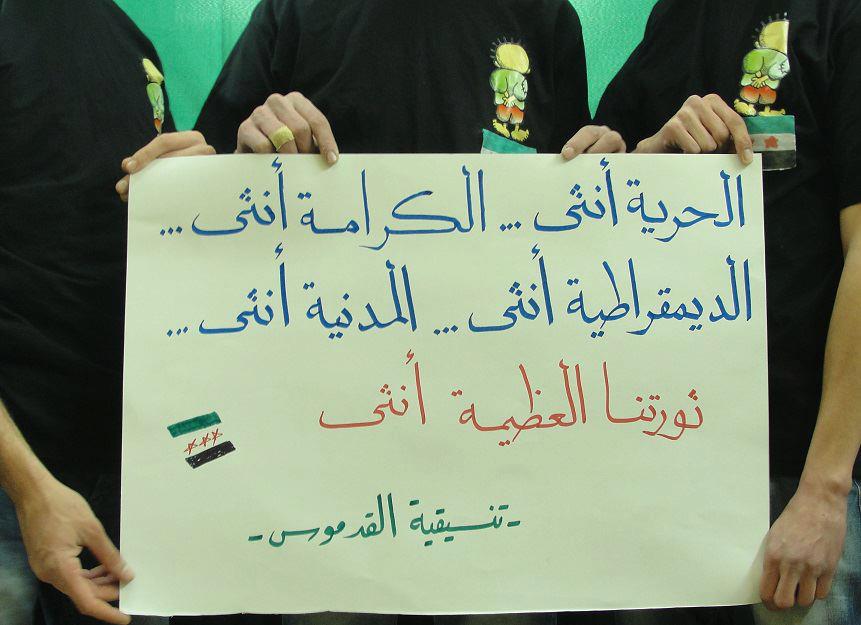 الحرية أنثى ... الكرامة أنثى ...
الديمقراطية أنثى ... المدنية أنثى ...
ثورتنا العظيمة أنثى
- تنسيقية القدموس -